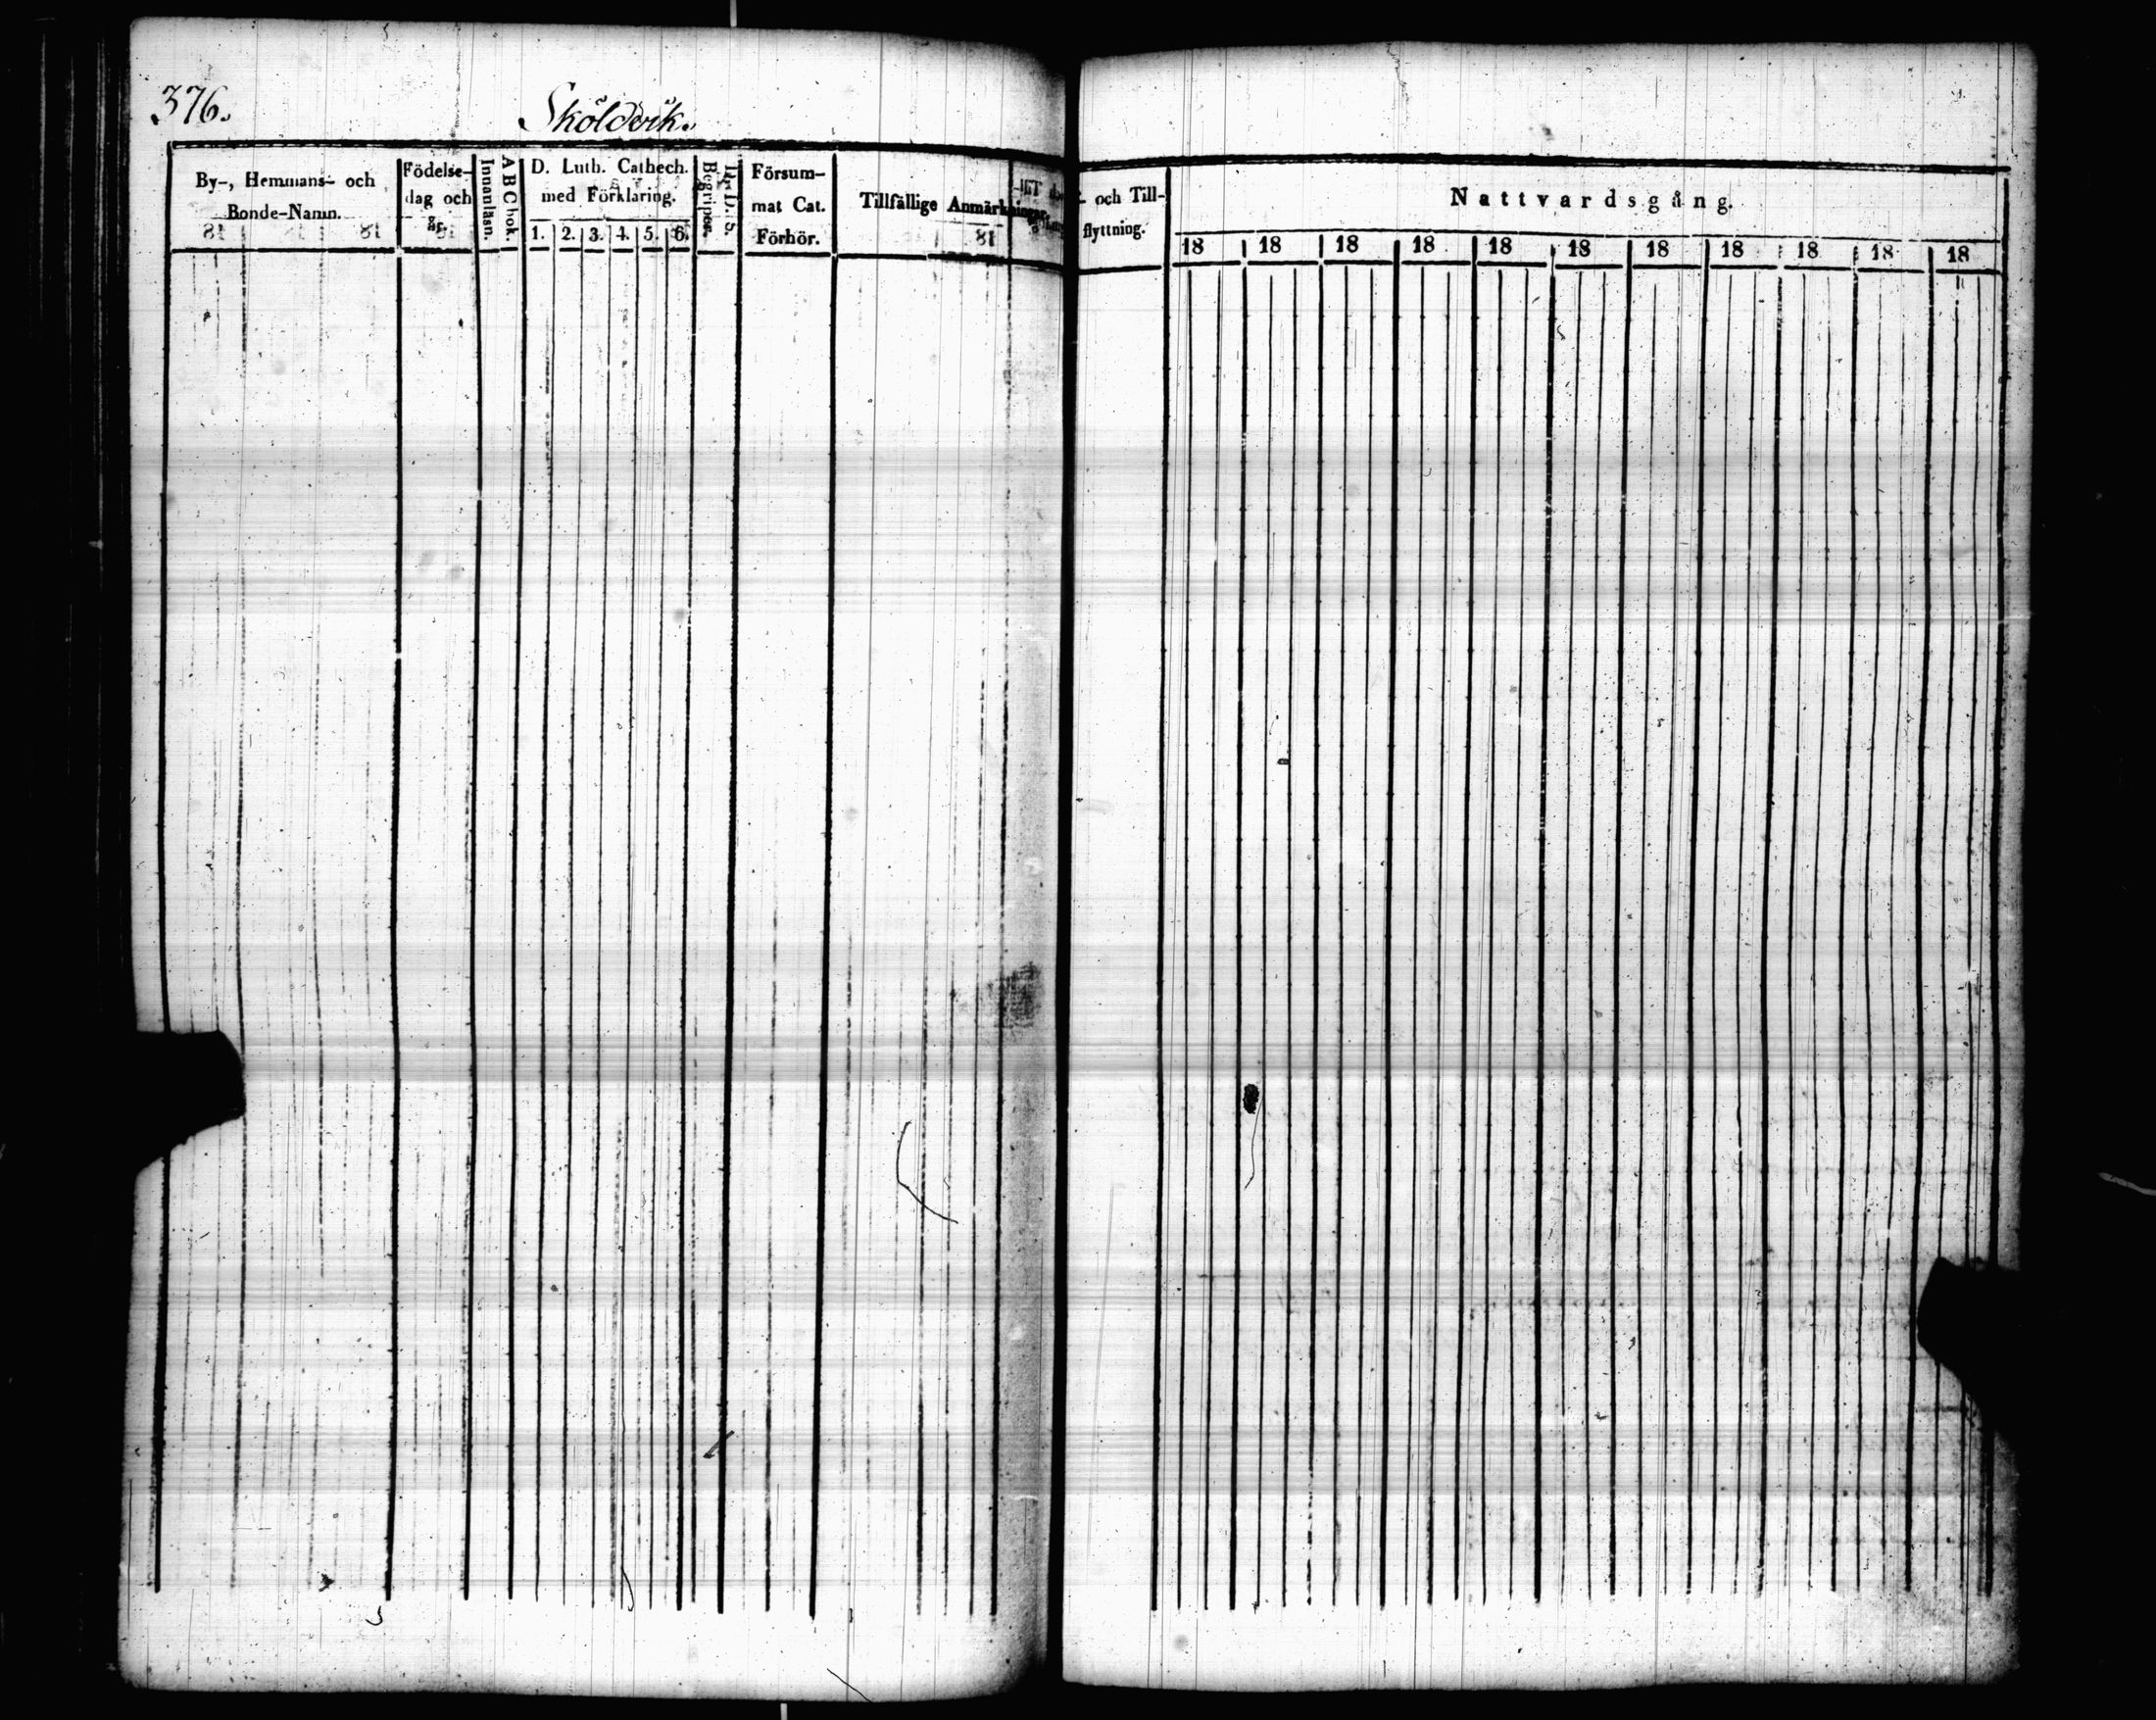 376.
Sköldvik.
By-, Hemmans- och
Bonde-Namn.
Födelse-
dag och
år.
Innanläsn.
ABC bok.
D. Luth. Cathech.
med Förklaring.
1. 2. 3. 4. 5. 6.
Begriper.
Försum-
mat Cat.
Förhör.
Tillfällige Anmärkningar.
och Till-
flyttning.
Nattvardsgång.
18 18 18 18 18 18 18 18 18 18 18